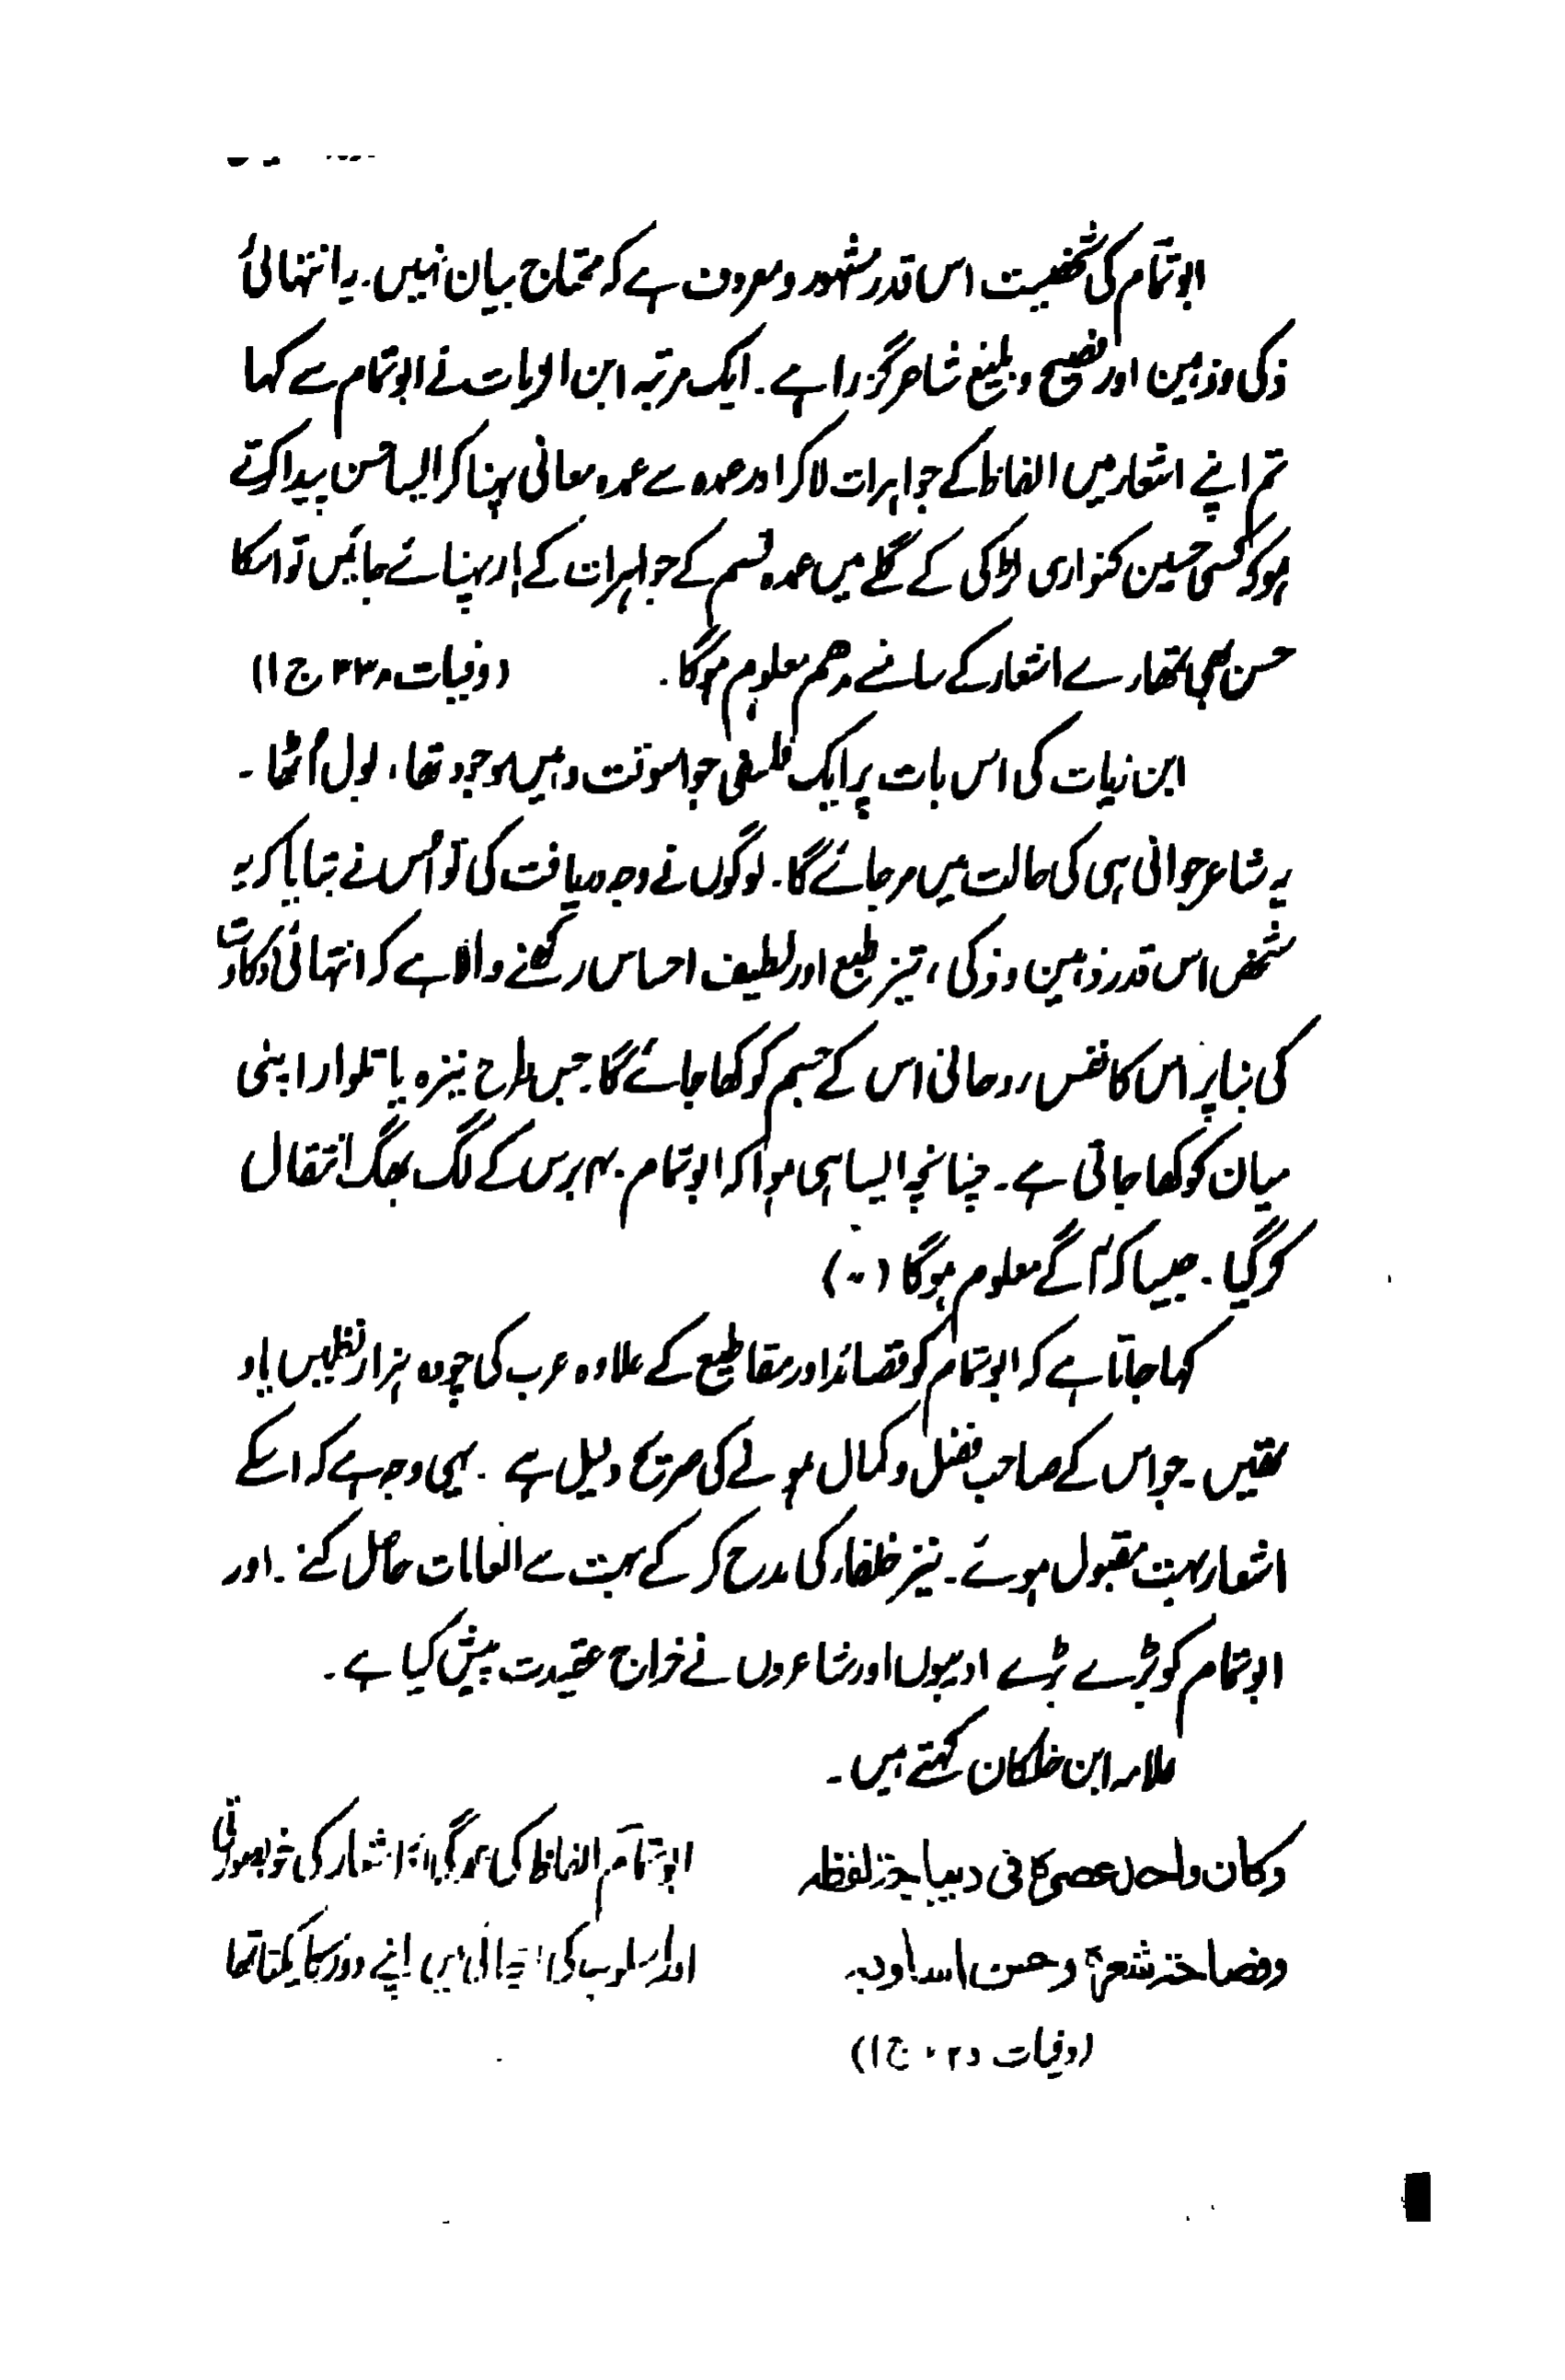 ابو تمّام کی شخصیت اس قدر مشہور و معروف ہے کہ محتاج بیان نہیں۔ یہ انتہائی
ذکی و ذہین اور فصیح و بلیغ شاعر گزرا ہے۔ ایک مرتبہ ابن الزیات نے ابو تمام سے کہا
تم اپنے اشعار میں الفاظ کے جواہرات لاکر اور عمدہ سے عمدہ معانی پہنا کر ایسا حسن پیدا کرتے
ہو کہ کسی حسین کنواری لڑکی کے گلے میں عمدہ قسم کے جواہرات کے ہار پہنائے جائیں تو اسکا
حسن بھی تمھارے اشعار کے سامنے مدھم معلوم ہوگا۔ (وفیات ۳۳۸ ج ۱)
ابن زیات کی اس بات پر ایک فلسفی جو اسوقت وہیں موجود تھا، بول اُٹھا۔
یہ شاعر جوانی ہی کی حالت میں مر جائے گا۔ لوگوں نے وجہ دریافت کی تو اُس نے بتایا کہ یہ
شخص اس قدر ذہین و ذکی، تیز طبع اور لطیف احساس رکھنے والا ہے کہ انتہائی ذکاوت
کی بنا پر اس کا نفس روحانی اس کے جسم کو کھا جائے گا۔ جس طرح نیزہ یا تلوار اپنی
میان کو کھا جاتی ہے۔ چنانچہ ایسا ہی ہوا کہ ابو تمام ۴۰ برس کے لگ بھگ انتقال
کر گیا۔ جیسا کہ آگے معلوم ہوگا
کہا جاتا ہے کہ ابو تمام کو قصائد اور مقاطیع کے علاوہ عرب کی چودہ ہزار نظمیں یاد
تھیں۔ جو اس کے صاحب فضل و کمال ہونے کی صریح دلیل ہے۔ یہی وجہ ہے کہ اسکے
اشعار بہت مقبول ہوئے۔ نیز خلفاء کی مدح کر کے بہت سے انعامات حاصل کئے۔ اور
ابو تمام کو بڑے بڑے ادیبوں اور شاعروں نے خراج عقیدت پیش کیا ہے۔
علامہ ابن خلکان کہتے ہیں۔
وکان واحد عصرہ فی دیباجۃ لفظہ
وفصاحۃ شعرہ وحسن اسلوبہ
(وفیات ج ۱)
ابو تمام الفاظ کی عمدگی اشعار کی خوبصورتی
اور اسلوب کی اچھائی میں اپنے دور کا یکتا تھا